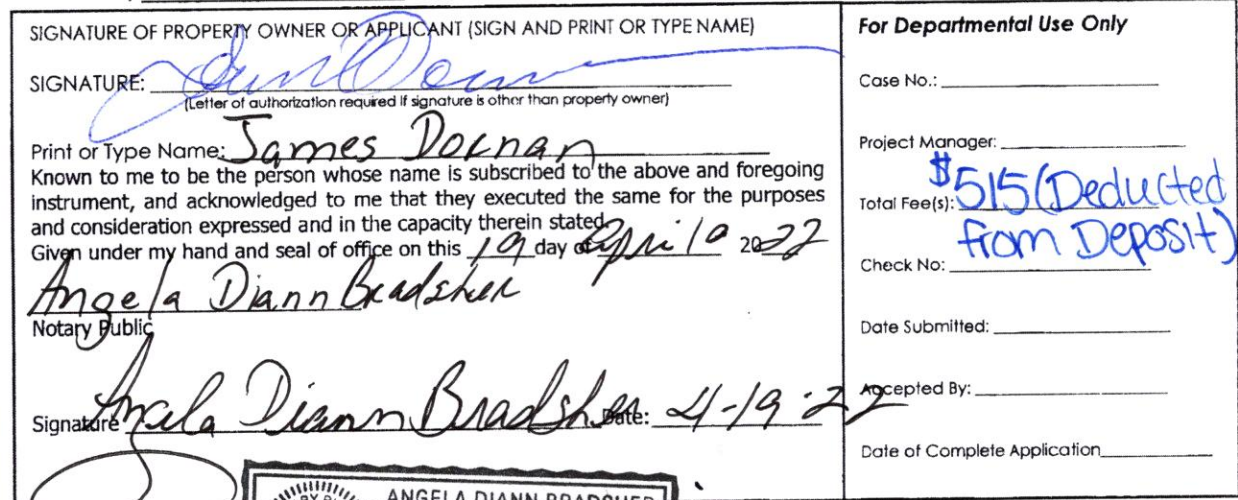 SIGNATURE OF PROPERTY OWNER OR APPLICANT (SIGN AND PRINT OR TYPE NAME)
SIGNATURE:
(Letter of authorization required if signature is other than property owner)
Print or Type Name: James Dornan
Known to me to be the person whose name is subscribed to the above and foregoing
instrument, and acknowledged to me that they executed the same for the purposes
and consideration expressed and in the capacity therein stated.
Given under my hand and seal of office on this 19 day of April 2022
Angela Diann Bradsher
Notary Public
Signature Angela Diann Bradsher Date: 4-19-22
ANGELA DIANN BRADSHER
For Departmental Use Only
Case No.:
Project Manager:
Total Fee(s): $515 (Deducted
from Deposit)
Check No:
Date Submitted:
Accepted By:
Date of Complete Application